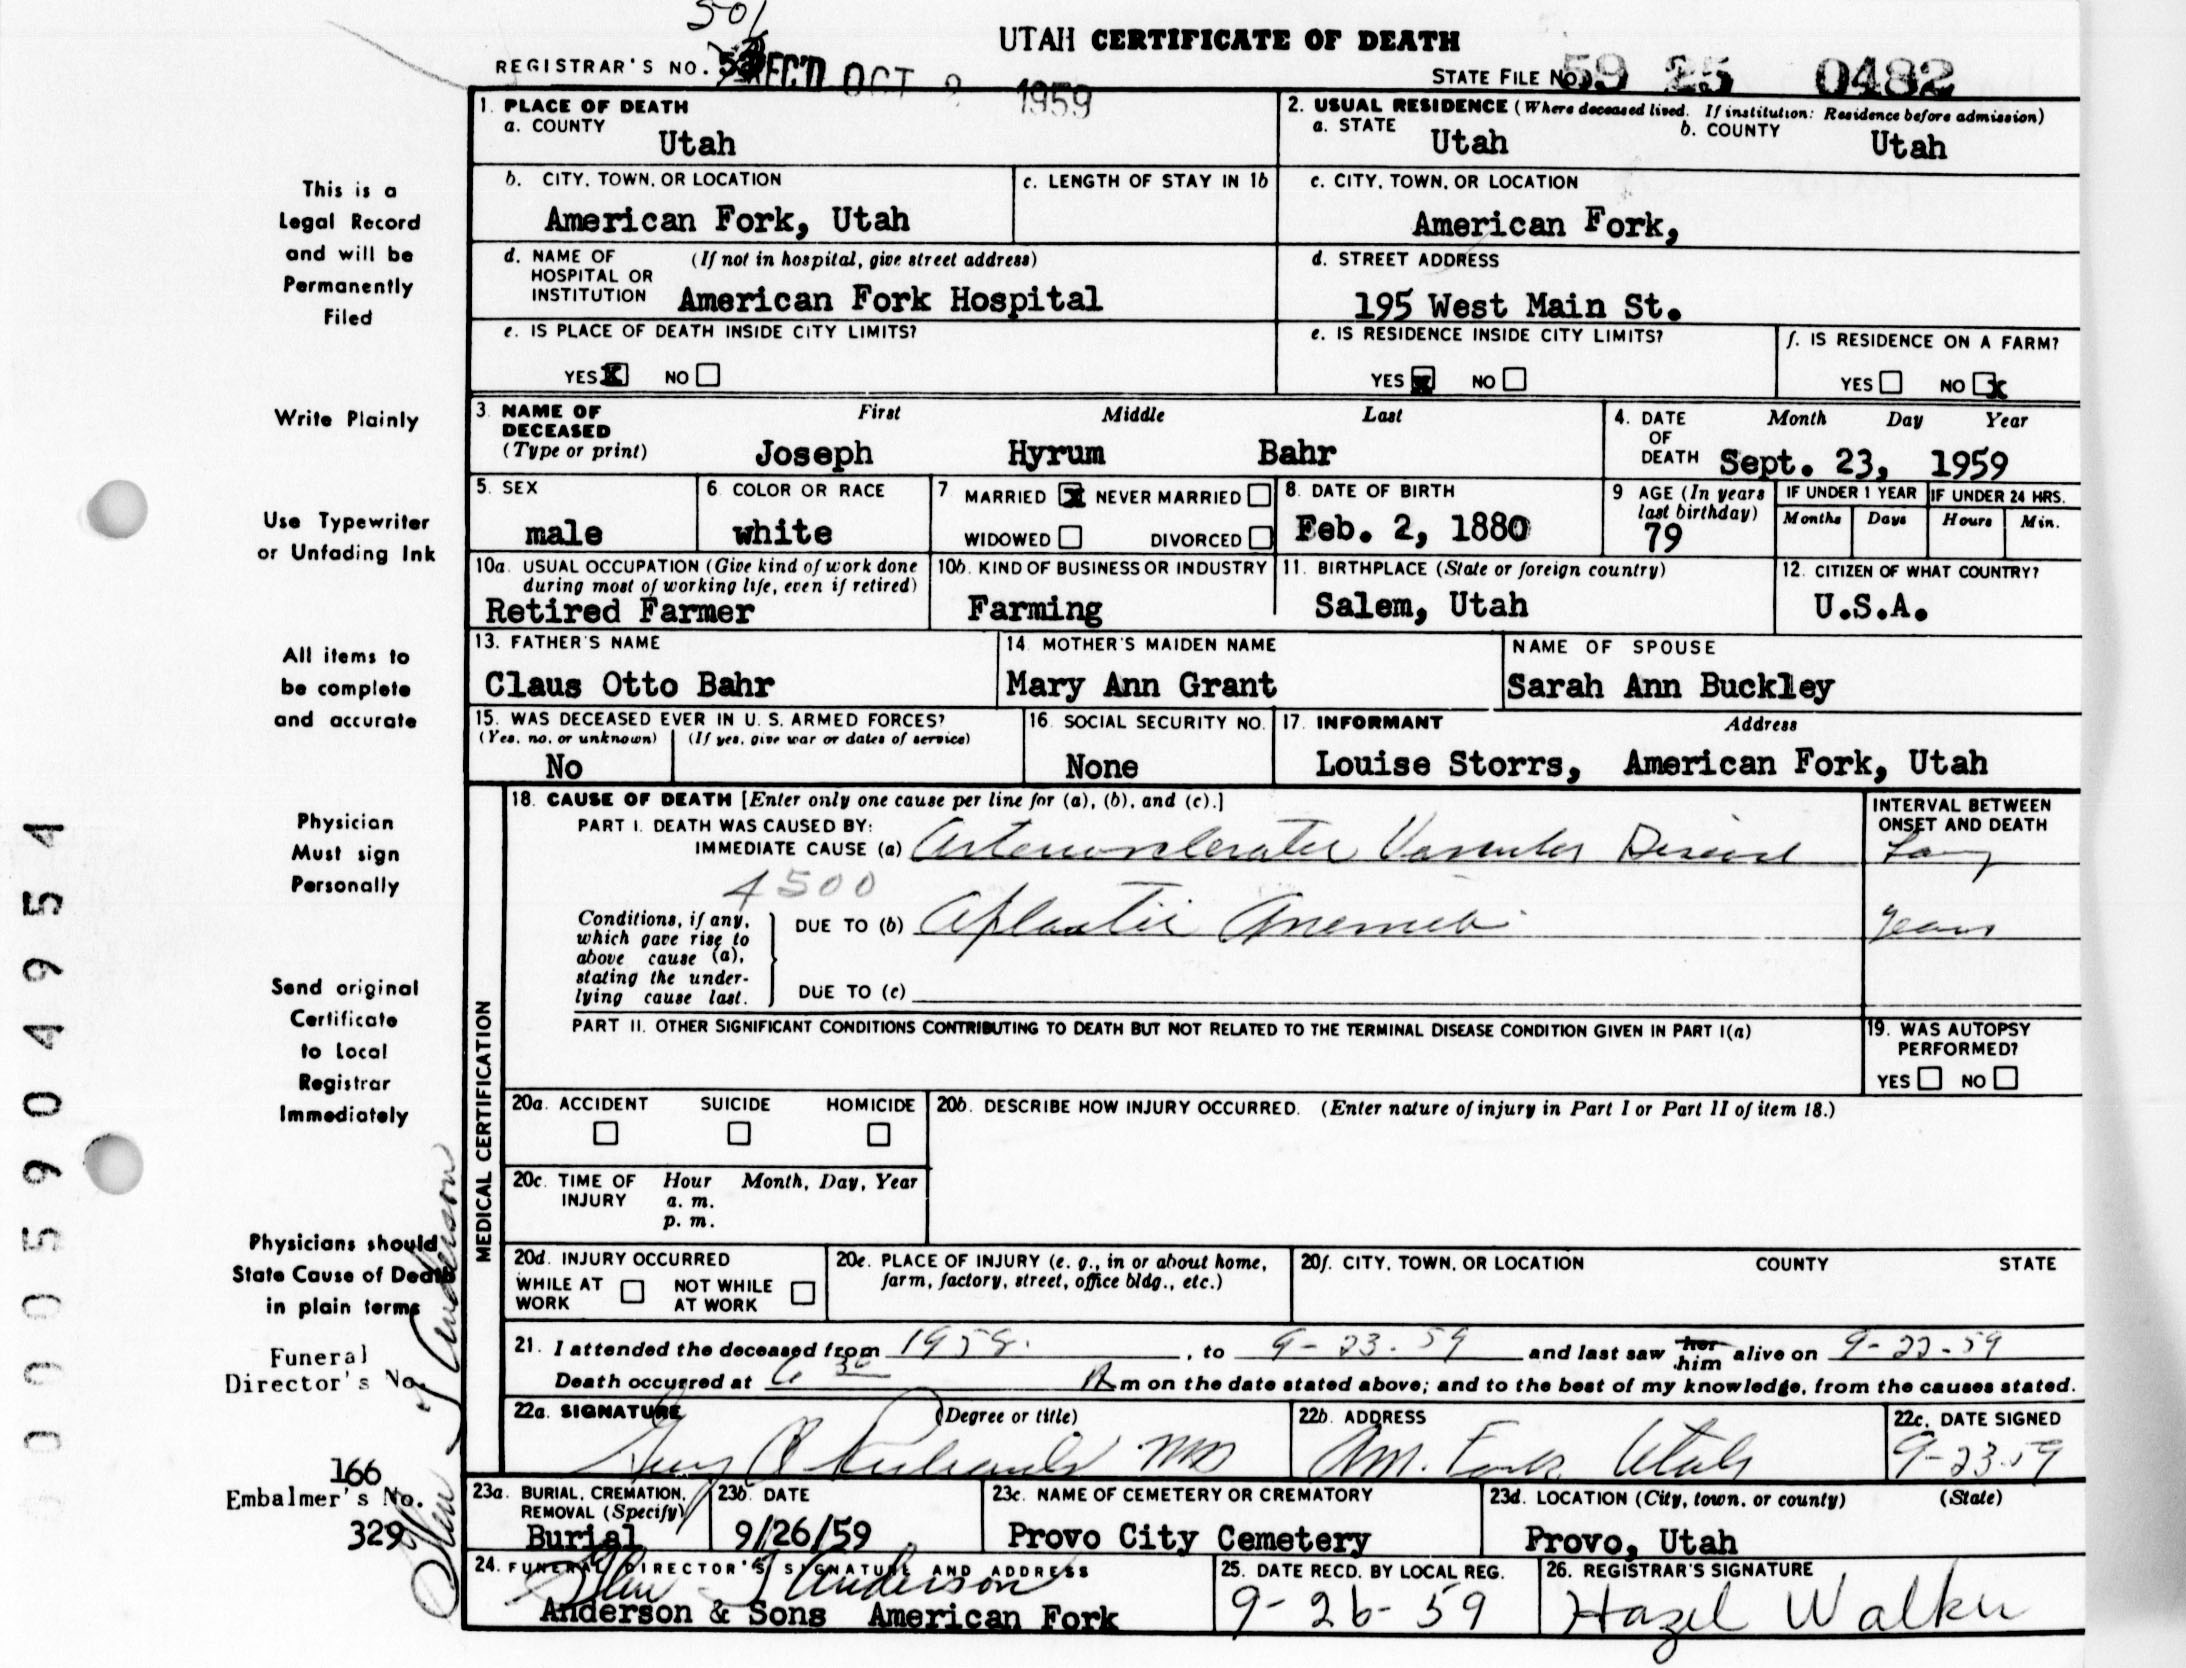 501
UTAH CERTIFICATE OF DEATH
REGISTRAR'S NO.
REC'D OCT 2 1959
STATE FILE NO. 59 25 0482
1. PLACE OF DEATH
a. COUNTY
Utah
2. USUAL RESIDENCE (Where deceased lived. If institution: Residence before admission)
a. STATE
Utah
b. COUNTY
Utah
b. CITY, TOWN, OR LOCATION
American Fork, Utah
c. LENGTH OF STAY IN 1b
c. CITY, TOWN, OR LOCATION
American Fork,
d. NAME OF HOSPITAL OR INSTITUTION
(If not in hospital, give street address)
American Fork Hospital
d. STREET ADDRESS
195 West Main St.
e. IS PLACE OF DEATH INSIDE CITY LIMITS?
YES X NO
e. IS RESIDENCE INSIDE CITY LIMITS?
YES X NO
f. IS RESIDENCE ON A FARM?
YES NO X
3. NAME OF DECEASED
(Type or print)
First Middle Last
Joseph Hyrum Bahr
4. DATE OF DEATH
Month Day Year
Sept. 23, 1959
5. SEX
male
6. COLOR OR RACE
white
7. MARRIED X NEVER MARRIED
WIDOWED DIVORCED
8. DATE OF BIRTH
Feb. 2, 1880
9. AGE (In years last birthday)
79
IF UNDER 1 YEAR
Months Days
IF UNDER 24 HRS.
Hours Min.
10a. USUAL OCCUPATION (Give kind of work done during most of working life, even if retired)
Retired Farmer
10b. KIND OF BUSINESS OR INDUSTRY
Farming
11. BIRTHPLACE (State or foreign country)
Salem, Utah
12. CITIZEN OF WHAT COUNTRY?
U.S.A.
13. FATHER'S NAME
Claus Otto Bahr
14. MOTHER'S MAIDEN NAME
Mary Ann Grant
NAME OF SPOUSE
Sarah Ann Buckley
15. WAS DECEASED EVER IN U. S. ARMED FORCES?
(Yes, no, or unknown) (If yes, give war or dates of service)
No
16. SOCIAL SECURITY NO.
None
17. INFORMANT Address
Louise Storrs, American Fork, Utah
MEDICAL CERTIFICATION
18. CAUSE OF DEATH [Enter only one cause per line for (a), (b), and (c).]
PART I. DEATH WAS CAUSED BY:
IMMEDIATE CAUSE (a) Vascular Disease
INTERVAL BETWEEN ONSET AND DEATH
4500
Conditions, if any, which gave rise to above cause (a), stating the underlying cause last.
DUE TO (b) Aplastic Anemia
years
DUE TO (c)
PART II. OTHER SIGNIFICANT CONDITIONS CONTRIBUTING TO DEATH BUT NOT RELATED TO THE TERMINAL DISEASE CONDITION GIVEN IN PART I(a)
19. WAS AUTOPSY PERFORMED?
YES NO
20a. ACCIDENT SUICIDE HOMICIDE
20b. DESCRIBE HOW INJURY OCCURRED. (Enter nature of injury in Part I or Part II of item 18.)
20c. TIME OF INJURY
Hour Month, Day, Year
a. m.
p. m.
20d. INJURY OCCURRED
WHILE AT WORK NOT WHILE AT WORK
20e. PLACE OF INJURY (e. g., in or about home, farm, factory, street, office bldg., etc.)
20f. CITY, TOWN, OR LOCATION COUNTY STATE
21. I attended the deceased from , to 9-23-59 and last saw her him alive on 9-22-59
Death occurred at 6 30 A m on the date stated above; and to the best of my knowledge, from the causes stated.
22a. SIGNATURE (Degree or title)
Guy Richards MD
22b. ADDRESS
Am. Fork Utah
22c. DATE SIGNED
9-23-59
23a. BURIAL, CREMATION, REMOVAL (Specify)
Burial
23b. DATE
9/26/59
23c. NAME OF CEMETERY OR CREMATORY
Provo City Cemetery
23d. LOCATION (City, town, or county) (State)
Provo, Utah
24. FUNERAL DIRECTOR'S SIGNATURE AND ADDRESS
Anderson
Anderson & Sons American Fork
25. DATE RECD. BY LOCAL REG.
9-26-59
26. REGISTRAR'S SIGNATURE
Hazel Walker
This is a
Legal Record
and will be
Permanently
Filed
Write Plainly
Use Typewriter
or Unfading Ink
All items to
be complete
and accurate
Physician
Must sign
Personally
Send original
Certificate
to Local
Registrar
Immediately
Physicians should
State Cause of Death
in plain terms
Funeral
Director's No.
166
Embalmer's No.
329
Anderson
0005904954